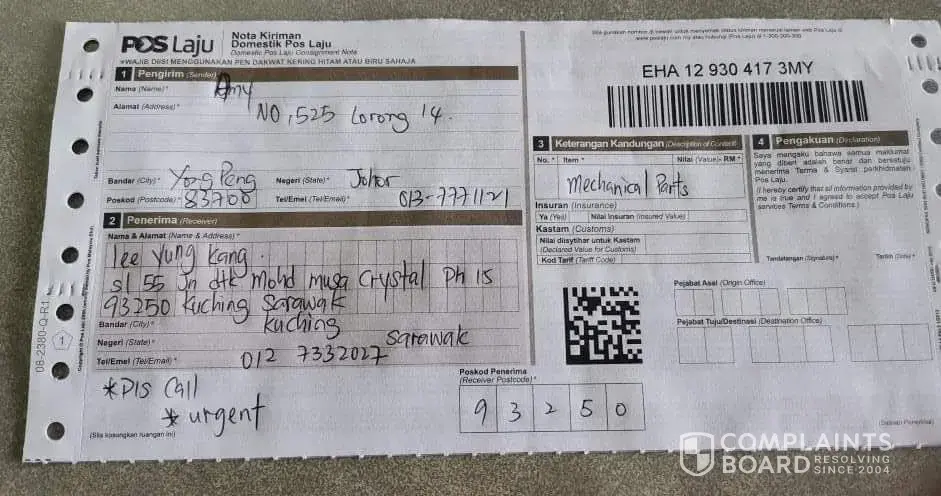 POS Laju
Nota Kiriman
Domestik Pos Laju
Domestic Pos Laju Consignment Note
*WAJIB DIISI MENGGUNAKAN PEN DAKWAT KERING HITAM ATAU BIRU SAHAJA
1 Pengirim (Sender)
Nama (Name)* Amy
Alamat (Address)* NO,525 Lorong 14.
Bandar (City)* Yong Peng Negeri (State)* Johor
Poskod (Postcode)* 83700 Tel/Emel (Tel/Email)* 013-7771121
2 Penerima (Receiver)
Nama & Alamat (Name & Address)*
lee Yung Kang.
sl 55 Jn dtk Mohd musa Crystal Ph 15
93250 Kuching Sarawak
Bandar (City)* Kuching
Negeri (State)* Sarawak
Tel/Emel (Tel/Email)* 012 7332027
*Pls Call
* urgent
(Sila kosongkan ruangan ini)
08-2380-Q-R1
1
EHA 12 930 417 3MY
3 Keterangan Kandungan (Description of Content)
No.* Item* Nilai (Value)- RM*
Mechanical Parts
Insuran (Insurance)
Ya (Yes) Nilai Insuran (Insured Value)
Kastam (Customs)
Nilai diisytihar untuk Kastam
(Declared Value for Customs)
Kod Tarif (Tariff Code)
4 Pengakuan (Declaration)
Saya mengaku bahawa semua maklumat
yang diberi adalah benar dan bersetuju
menerima Terma & Syarat perkhidmatan
Pos Laju.
(I hereby certify that all information provided by
me is true and I agree to accept Pos Laju
services Terms & Conditions.)
Tandatangan (Signature)* Tarikh (Date)*
Pejabat Asal (Origin Office)
Pejabat Tuju/Destinasi (Destination Office)
Poskod Penerima
(Receiver Postcode)*
9 3 2 5 0
COMPLAINTS
BOARD RESOLVING
SINCE 2004